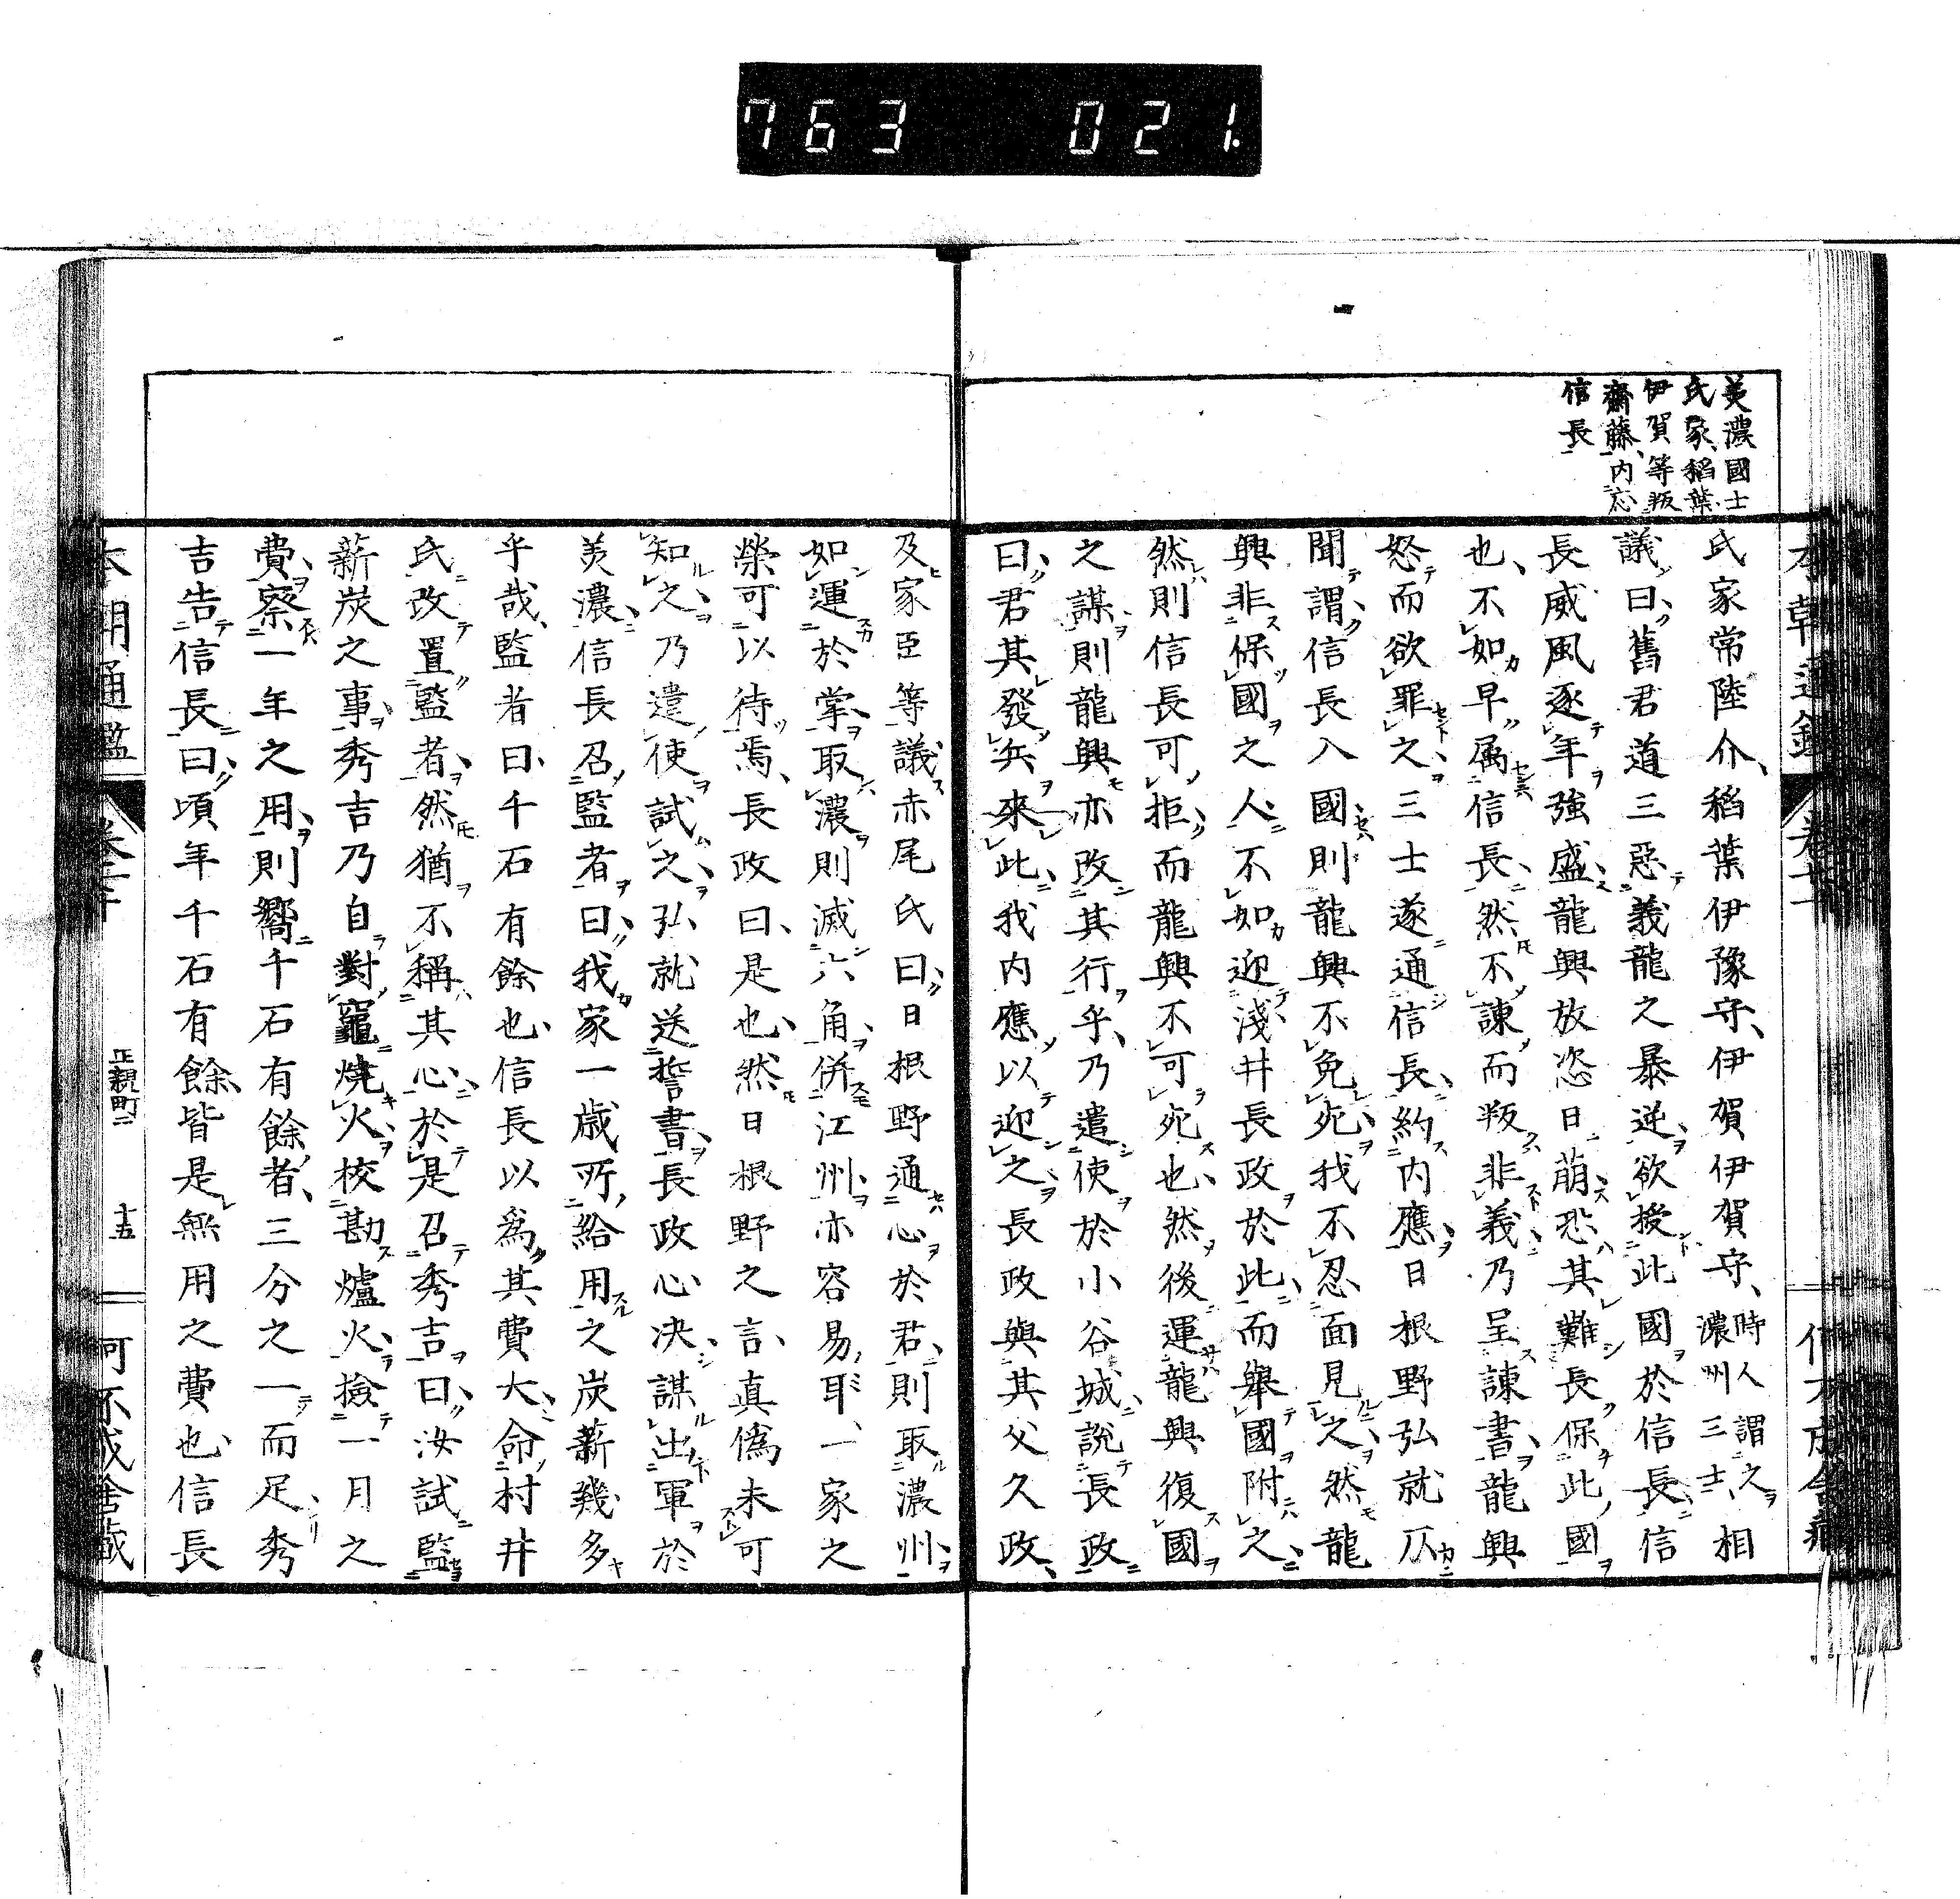 763 021.
美濃國士
氏家稻葉
伊賀等叛
齋藤内応
信長
氏家常陸介、稻葉伊豫守、伊賀伊賀守、時人謂之濃州三士、相
議曰舊君道三惡義龍之暴逆欲授此國於信長信
長威風逐年強盛龍興放恣日萠恐其難長保此國
也、不如早属信長、然不諫而叛非義乃呈諫書龍興
怒而欲罪之三士遂通信長約内應日根野弘就仄
聞謂信長入國則龍興不免死我不忍面見之然龍
興非保國之人不如迎淺井長政於此而舉國附之
然則信長可拒而龍興不可死也、然後運龍興復國
之謀則龍興亦改其行乎、乃遣使於小谷城說長政
曰君其發兵來此我内應以迎之長政與其父久政、
及家臣等議赤尾氏曰日根野通心於君則取濃州
如運於掌取濃則滅六角併江州亦容易耶、一家之
榮可以待焉、長政曰、是也、然日根野之言、真僞未可
知之乃遣使試之弘就送誓書長政心决謀出軍於
美濃信長召監者曰我家一歳所給用之炭薪幾多
乎哉、監者曰、千石有餘也、信長以爲其費大命村井
氏改置監者然猶不稱其心於是召秀吉曰汝試監
薪炭之事秀吉乃自對竈焼火校勘爐火撿一月之
費察一年之用則嚮千石有餘者、三分之一而足秀
吉告信長曰頃年千石有餘皆是無用之費也、信長
本朝通鑑
正親町二
十五